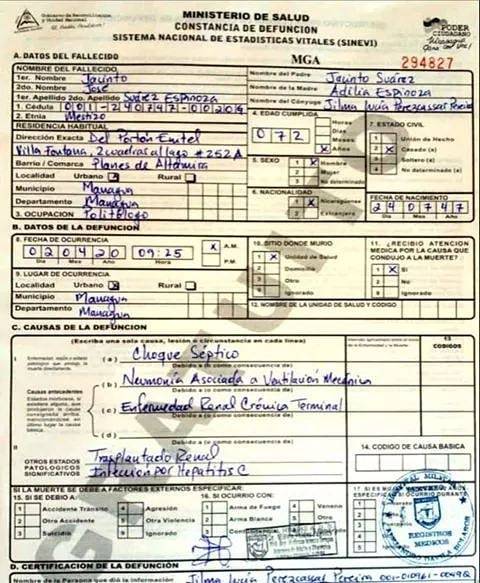 Gobierno de Reconciliación
y Unidad Nacional
El Pueblo, Presidente!
MINISTERIO DE SALUD
CONSTANCIA DE DEFUNCION
SISTEMA NACIONAL DE ESTADISTICAS VITALES (SINEVI)
PODER
CIUDADANO
A. DATOS DEL FALLECIDO
MGA
294827
NOMBRE DEL FALLECIDO
1er. Nombre Jacinto
2do. Nombre José
1er. Apellido 2do. Apellido Suárez Espinoza
Nombre del Padre Jacinto Suárez
Nombre de la Madre Adilia Espinoza
Nombre del Cónyuge
1. Cédula 001-240747-0020G
2. Etnia Mestizo
RESIDENCIA HABITUAL
Dirección Exacta Del Portón Enitel
Villa Fontana, 2 cuadras al lago #252A
Barrio / Comarca Planes de Altamira
Localidad Urbano X Rural
Municipio Managua
Departamento Managua
3. OCUPACION Politólogo
4. EDAD CUMPLIDA
072
Horas
Dias
Meses
X Años
5. SEXO
1 X Hombre
2 Mujer
No determinado
6. NACIONALIDAD
1 X Nicaragüense
2 Extranjera
7. ESTADO CIVIL
1 Unión de Hecho
2 X Casado (a)
3 Soltero (a)
4 No determinado
FECHA DE NACIMIENTO
240747
Dia Mes Año
B. DATOS DE LA DEFUNCION
8. FECHA DE OCURRENCIA
020420 09:25
X A.M.
P.M.
Dia Mes Año Hora
9. LUGAR DE OCURRENCIA
Localidad Urbano X Rural
Municipio Managua
Departamento Managua
10. SITIO DONDE MURIO
1 X Unidad de Salud
2 Domicilio
3 Otro
9 Ignorado
11. ¿RECIBIO ATENCION
MEDICA POR LA CAUSA QUE
CONDUJO A LA MUERTE?
1 X Si
2 No
9 Ignorado
12. NOMBRE DE LA UNIDAD DE SALUD Y CODIGO
C. CAUSAS DE LA DEFUNCION
(Escriba una sola causa, lesión o circunstancia en cada linea)
13
CODIGOS
I
(a) Choque Séptico
Debido a (o como consecuencia de)
(b) Neumonía Asociada a Ventilación Mecánica
Debido a (o como consecuencia de)
Causas antecedentes
(c) Enfermedad Renal Crónica Terminal
Debido a (o como consecuencia de)
(d)
II
OTROS ESTADOS
PATOLOGICOS
SIGNIFICATIVOS
Trasplantado Renal
Infeccion por Hepatitis C
14. CODIGO DE CAUSA BASICA
SI LA MUERTE SE DEBE A FACTORES EXTERNOS ESPECIFICAR:
15. SI SE DEBIO A:
1 Accidente Tránsito
2 Otro Accidente
3 Suicidio
4 Agresión
5 Otra Violencia
9 Ignorado
16. SI OCURRIO CON:
1 Arma de Fuego
2 Arma Blanca
4 Veneno
Otro
Ignorado
HOSPITAL MILITAR
REGISTROS
MEDICOS
D. CERTIFICACION DE LA DEFUNCION
Nombre de la Persona que dió la información